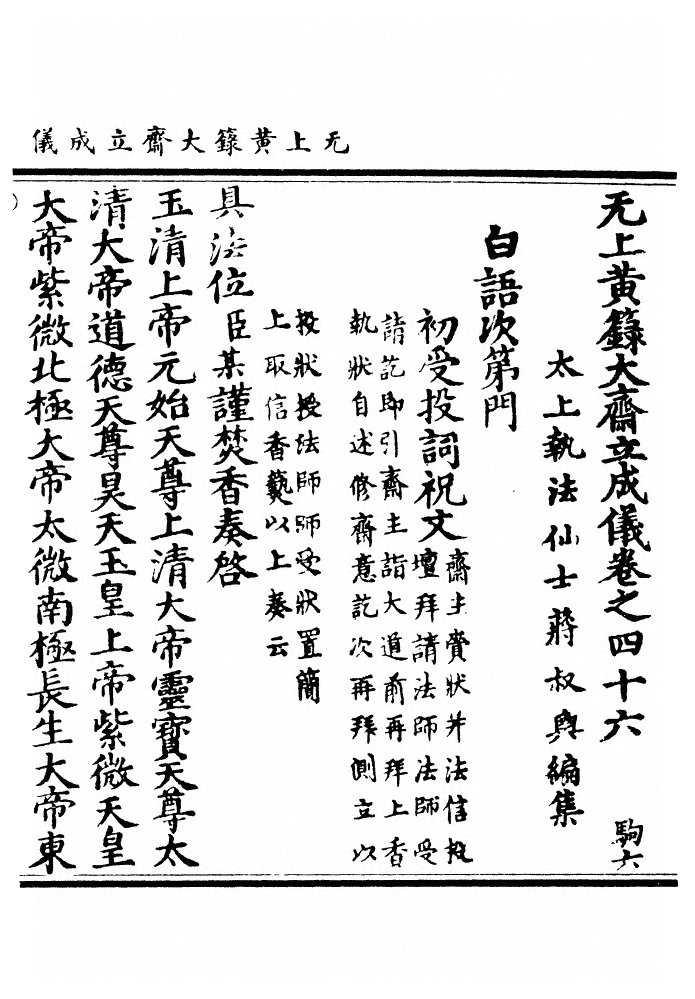 儀成立齋大籙黃上无
无上黃籙大齋立成儀卷之四十六 駒六
太上執法仙士蔣叔輿編集
白語次第門
初受投詞祝文
齋主賫狀并法信投
壇拜請法師法師受
請訖即引齋主詣大道前再拜上香
執狀自述修齋意訖次再拜側立以
投狀授法師師受狀置簡
上取信香爇以上奏云
具法位臣某謹焚香奏啓
玉清上帝元始天尊上清大帝靈寶天尊太
清大帝道德天尊昊天玉皇上帝紫微天皇
大帝紫微北極大帝太微南極長生大帝東